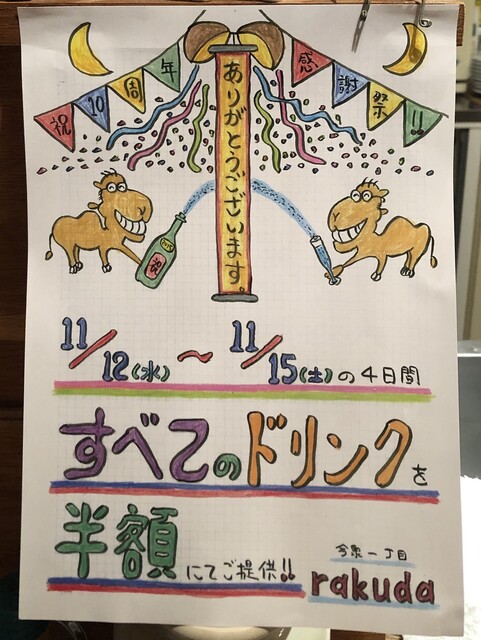 祝10周年
感謝祭!!
ありがとうございます。
祝
11/12(水)～11/15(土)の4日間
すべてのドリンクを
半額にてご提供!!
今泉一丁目
rakuda